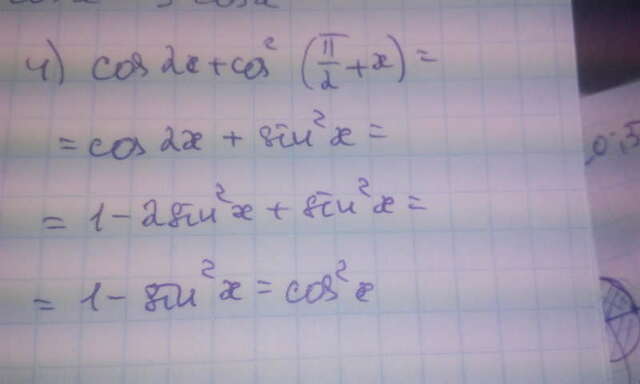 4) cos 2x + cos² (π/2 + x) =
= cos 2x + sin² x =
= 1 - 2 sin² x + sin² x =
= 1 - sin² x = cos² x